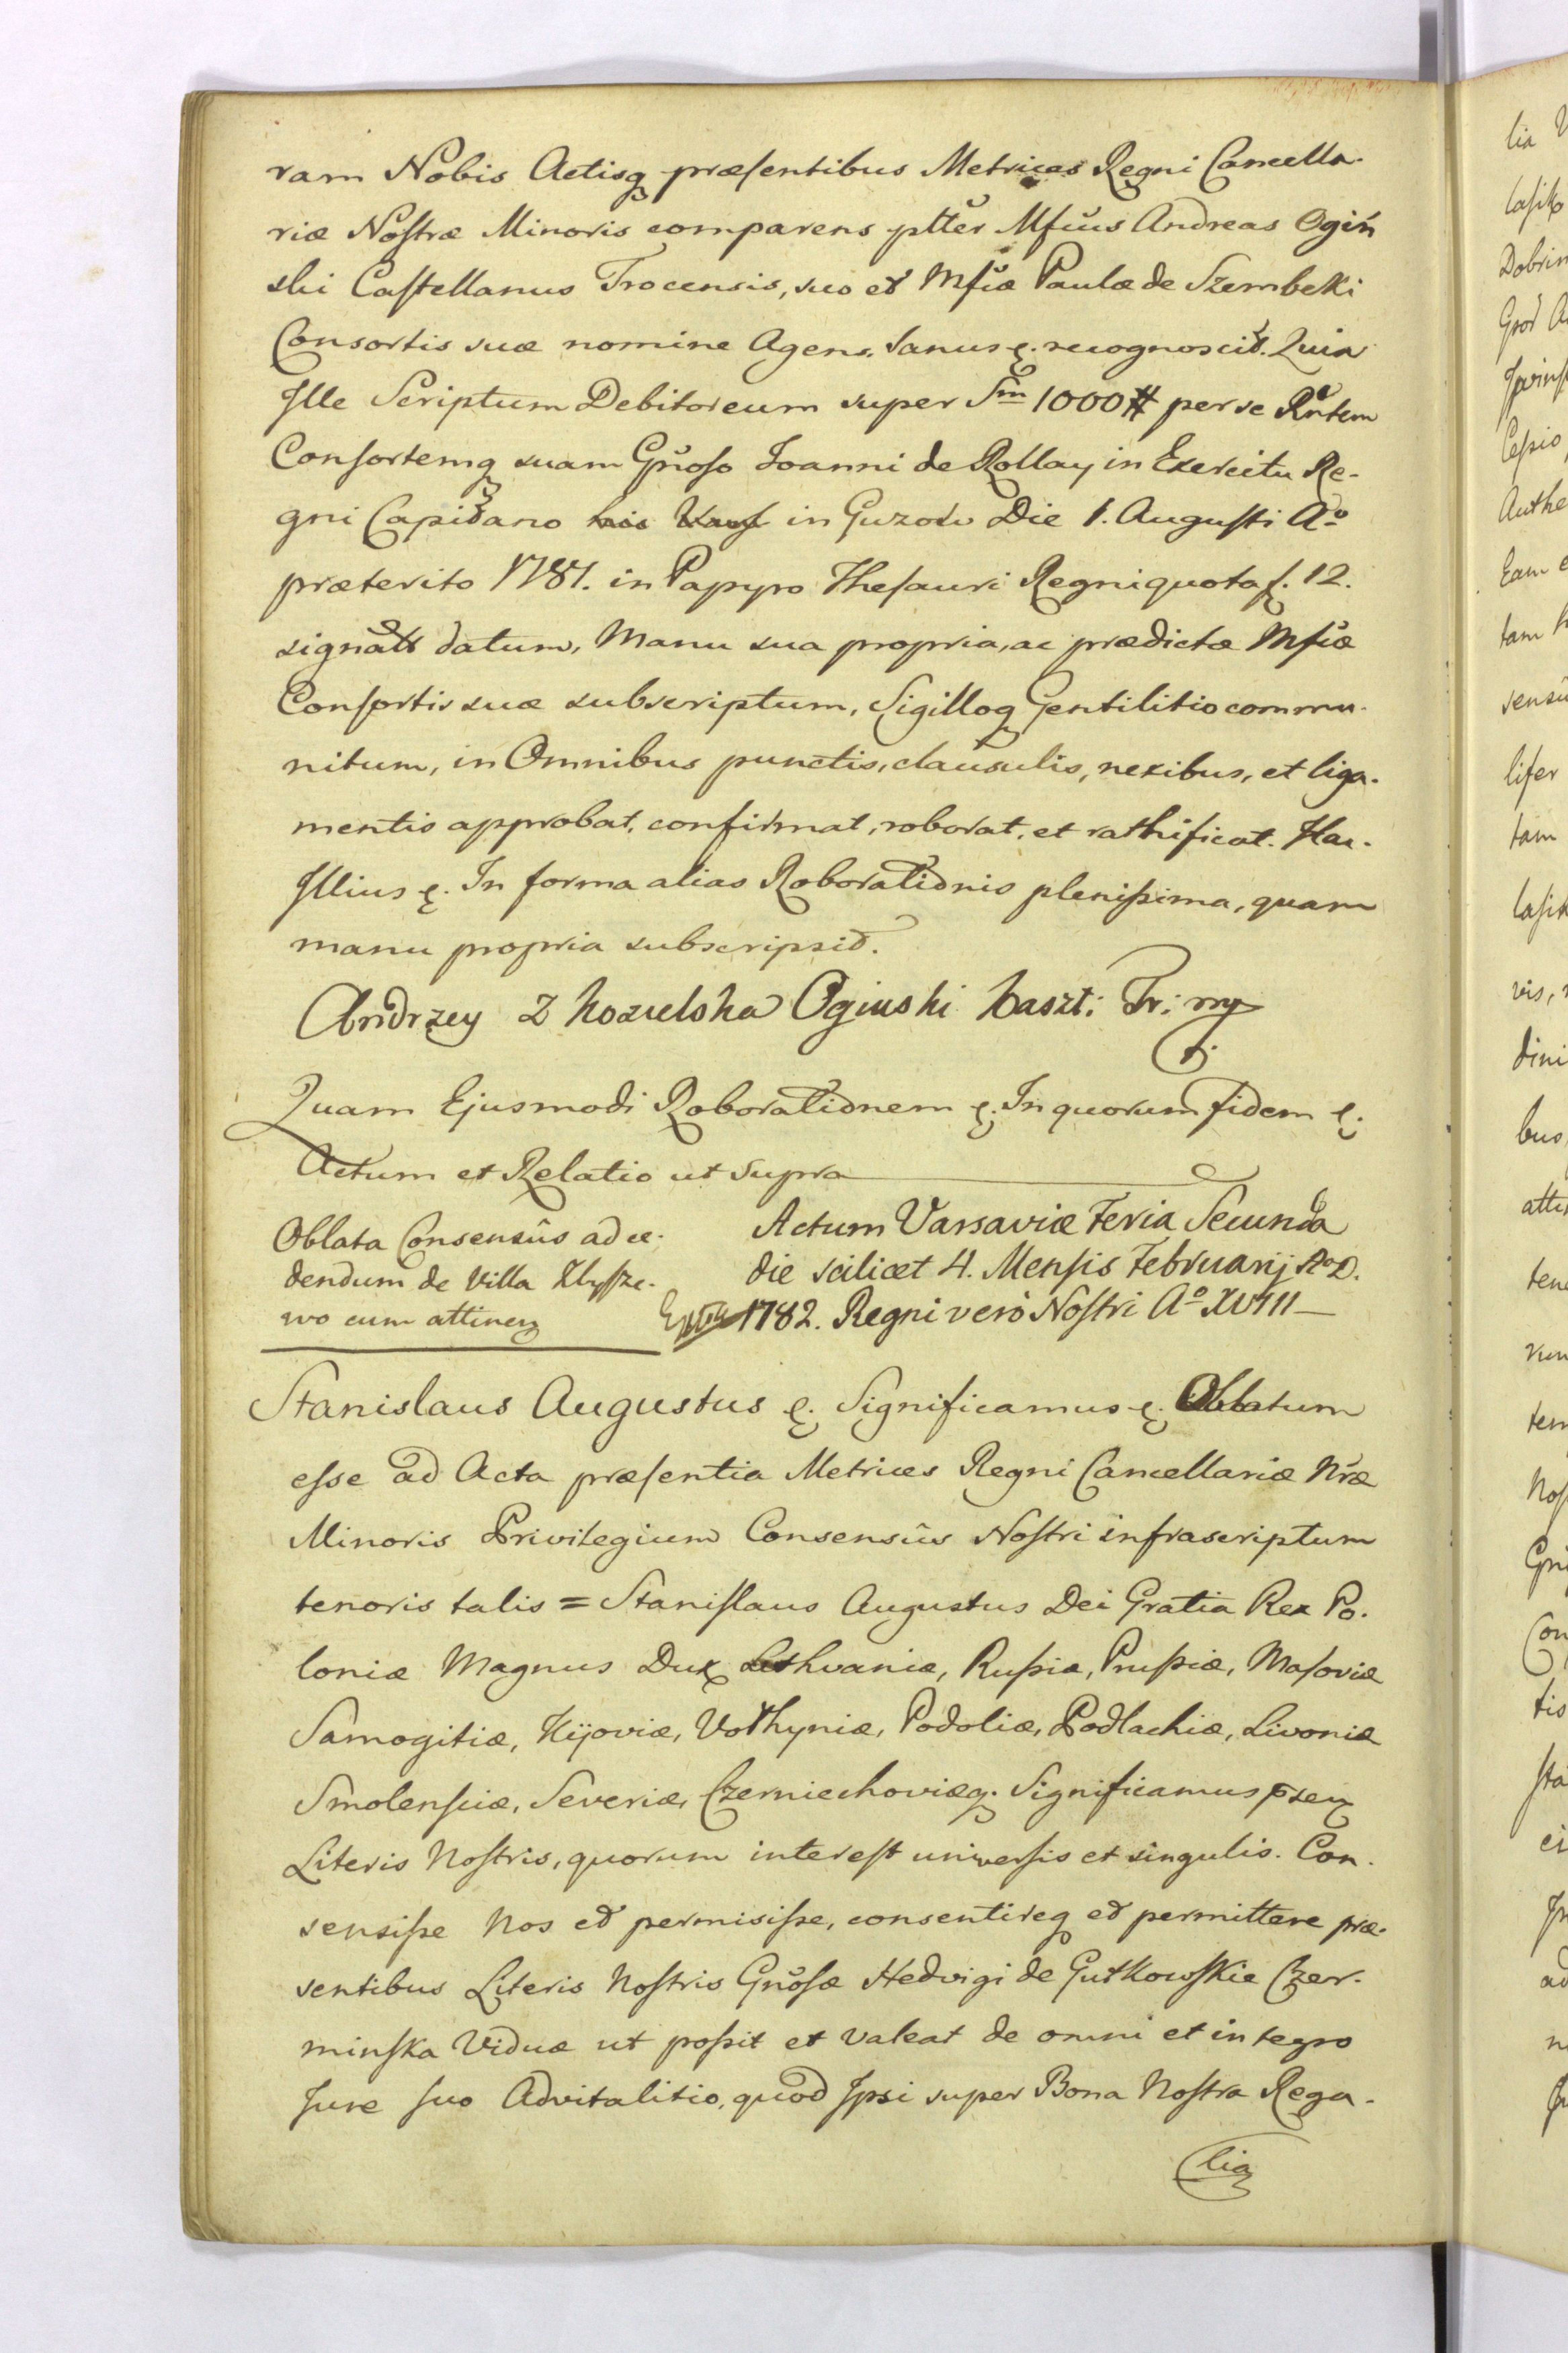 ram Nobis Actisq præsentibus Metrices Regni Cancella-
riæ Nostræ Minoris comparens pltter Mfcus Andreas Ogiń
ski Castellanus Trocensis, suo et Mfcæ Paulæ de Szembeki
Consortis suæ nomine Agens. Sanus &. recognoscit. Quia
Ille Scriptum Debitoreum super Sm 1000 # per se Rntem
Consortemq suam Gnoso Joanni de Rollay in Exercitu Re-
gni Capitano in Guzow Die 1. Augusti Ao
præterito 1781. in Papyro Thesauri Regni quota f. 12.
signata datum, Manu sua propria, ac prædictæ Mfcæ
Consortis suæ subscriptum, Sigilloq Gentilitio commu-
nitum, in Omnibus punctis, clausulis, nexibus, et liga-
mentis approbat, confirmat, roborat, et rathificat. Har.
Illius &. In forma alias Roborationis plenissima, quam
manu propria subscripsit.
Andrzey z Kozielska Oginski Kaszt: Tr: mp
Quam Ejusmodi Roborationem &. In quorum fidem &.
Actum et Relatio ut supra
Oblata Consensûs ad ce-
dendum de Villa Klysze-
wo cum attinen
Actum Varsaviæ Feria Secunda
die scilicet 4. Mensis Februarij AoD.
1782. Regni verò Nostri Ao XVIII
Stanislaus Augustus &. Significamus &. Oblatum
esse ad Acta præsentia Metrices Regni Cancellariæ Nræ
Minoris Privilegium Consensûs Nostri infrascriptum
tenoris talis = Stanislaus Augustus Dei Gratia Rex Po-
loniæ Magnus Dux Lithvaniæ, Russiæ, Prussiæ, Masoviæ
Samogitiæ, Kijoviæ, Volhyniæ, Podoliæ, Podlachiæ, Livoniæ
Smolensciæ, Severiæ, Czerniechoviæq. Significamus psen
Literis Nostris, quorum interest universis et singulis. Con-
sensisse Nos et permisisse, consentireq et permittere præ-
sentibus Literis Nostris Gnosæ Hedvigi de Gutkowskie Czer-
minska Viduæ ut possit et valeat de omni et integro
Jure suo Advitalitio, quod Ipsi super Bona Nostra Rega-
lia